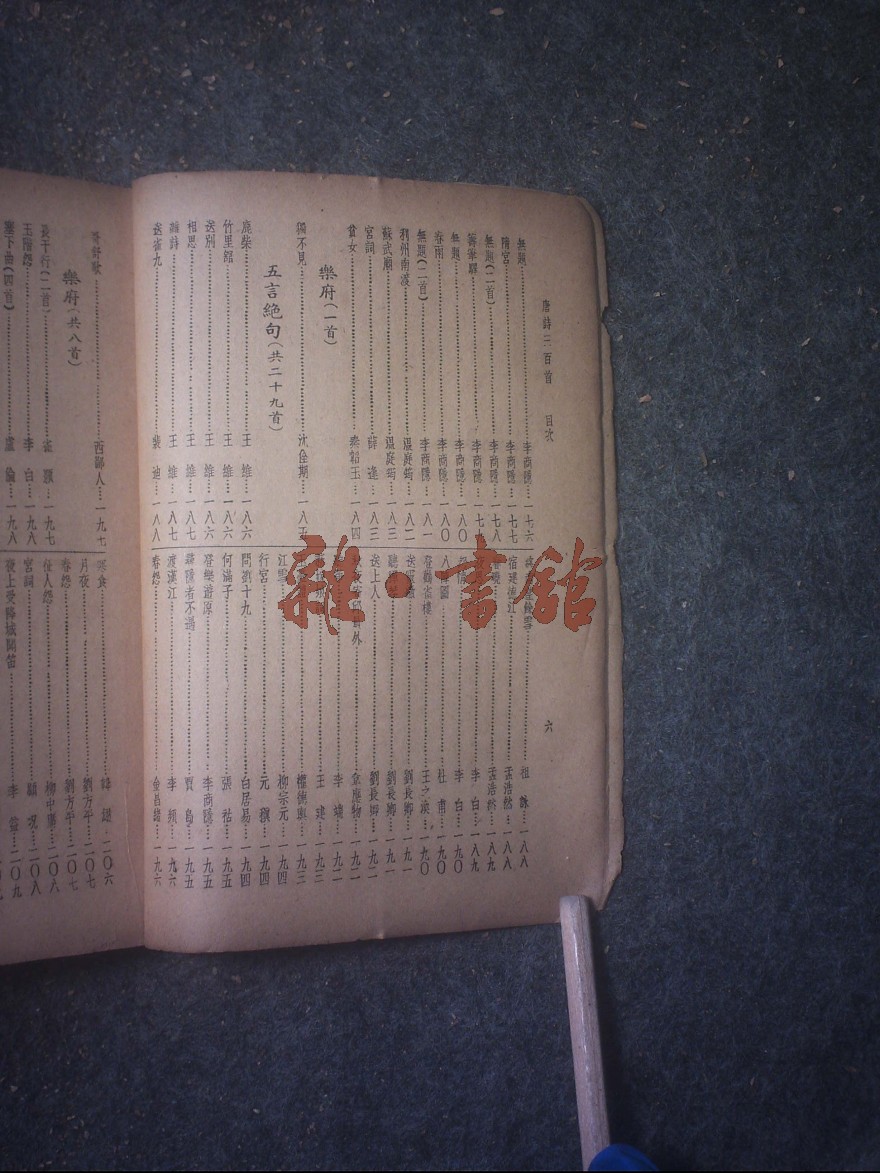 唐詩三百首 目次 六
無題……李商隱…一七六
隋宮……李商隱…一七七
無題(二首)……李商隱…一七八
籌筆驛……李商隱…一七
無題……李商隱…一八〇
春雨……李商隱…一八〇
無題(二首)……李商隱…一八一
利州南渡……溫庭筠…一八二
蘇武廟……溫庭筠…一八三
宮詞……薛逢…一八三
貧女……秦韜玉…一八四
樂府(一首)
獨不見……沈佺期…一八五
五言絕句(共二十九首)
鹿柴……王維…一八六
竹里館……王維…一八六
送別……王維…一八六
相思……王維…一八七
雜詩……王維…一八七
送崔九……裴迪…一八八
餘雪……祖詠…一八八
宿建德江……孟浩然…一八八
孟浩然…一八九
李白…一八九
李白…一九〇
八 圖……杜甫…一九〇
登鸛雀樓……王之渙…一九〇
送靈……劉長卿…一九一
聽……劉長卿…一九一
送上人……劉長卿…一九二
外……韋應物…一九二
李端…一九二
王建…一九三
權德輿…一九三
江雪……柳宗元…一九四
行宮……元稹…一九四
問劉十九……白居易…一九四
何滿子……張祜…一九五
登樂遊原……李商隱…一九五
尋隱者不遇……賈島…一九五
渡漢江……李頻…一九六
春怨……金昌緒…一九六
哥舒歌……西鄙人…一九七
樂府(共八首)
長干行(二首)……崔顥…一九七
玉階怨……李白…一九八
塞下曲(四首)……盧倫…一九八
寒食……韓翃…二〇六
月夜……劉方平…二〇七
春怨……劉方平…二〇七
征人怨……柳中庸…二〇六
宮詞……顧況…二〇八
夜上受降城聞笛……李益…二〇九
雜·書館